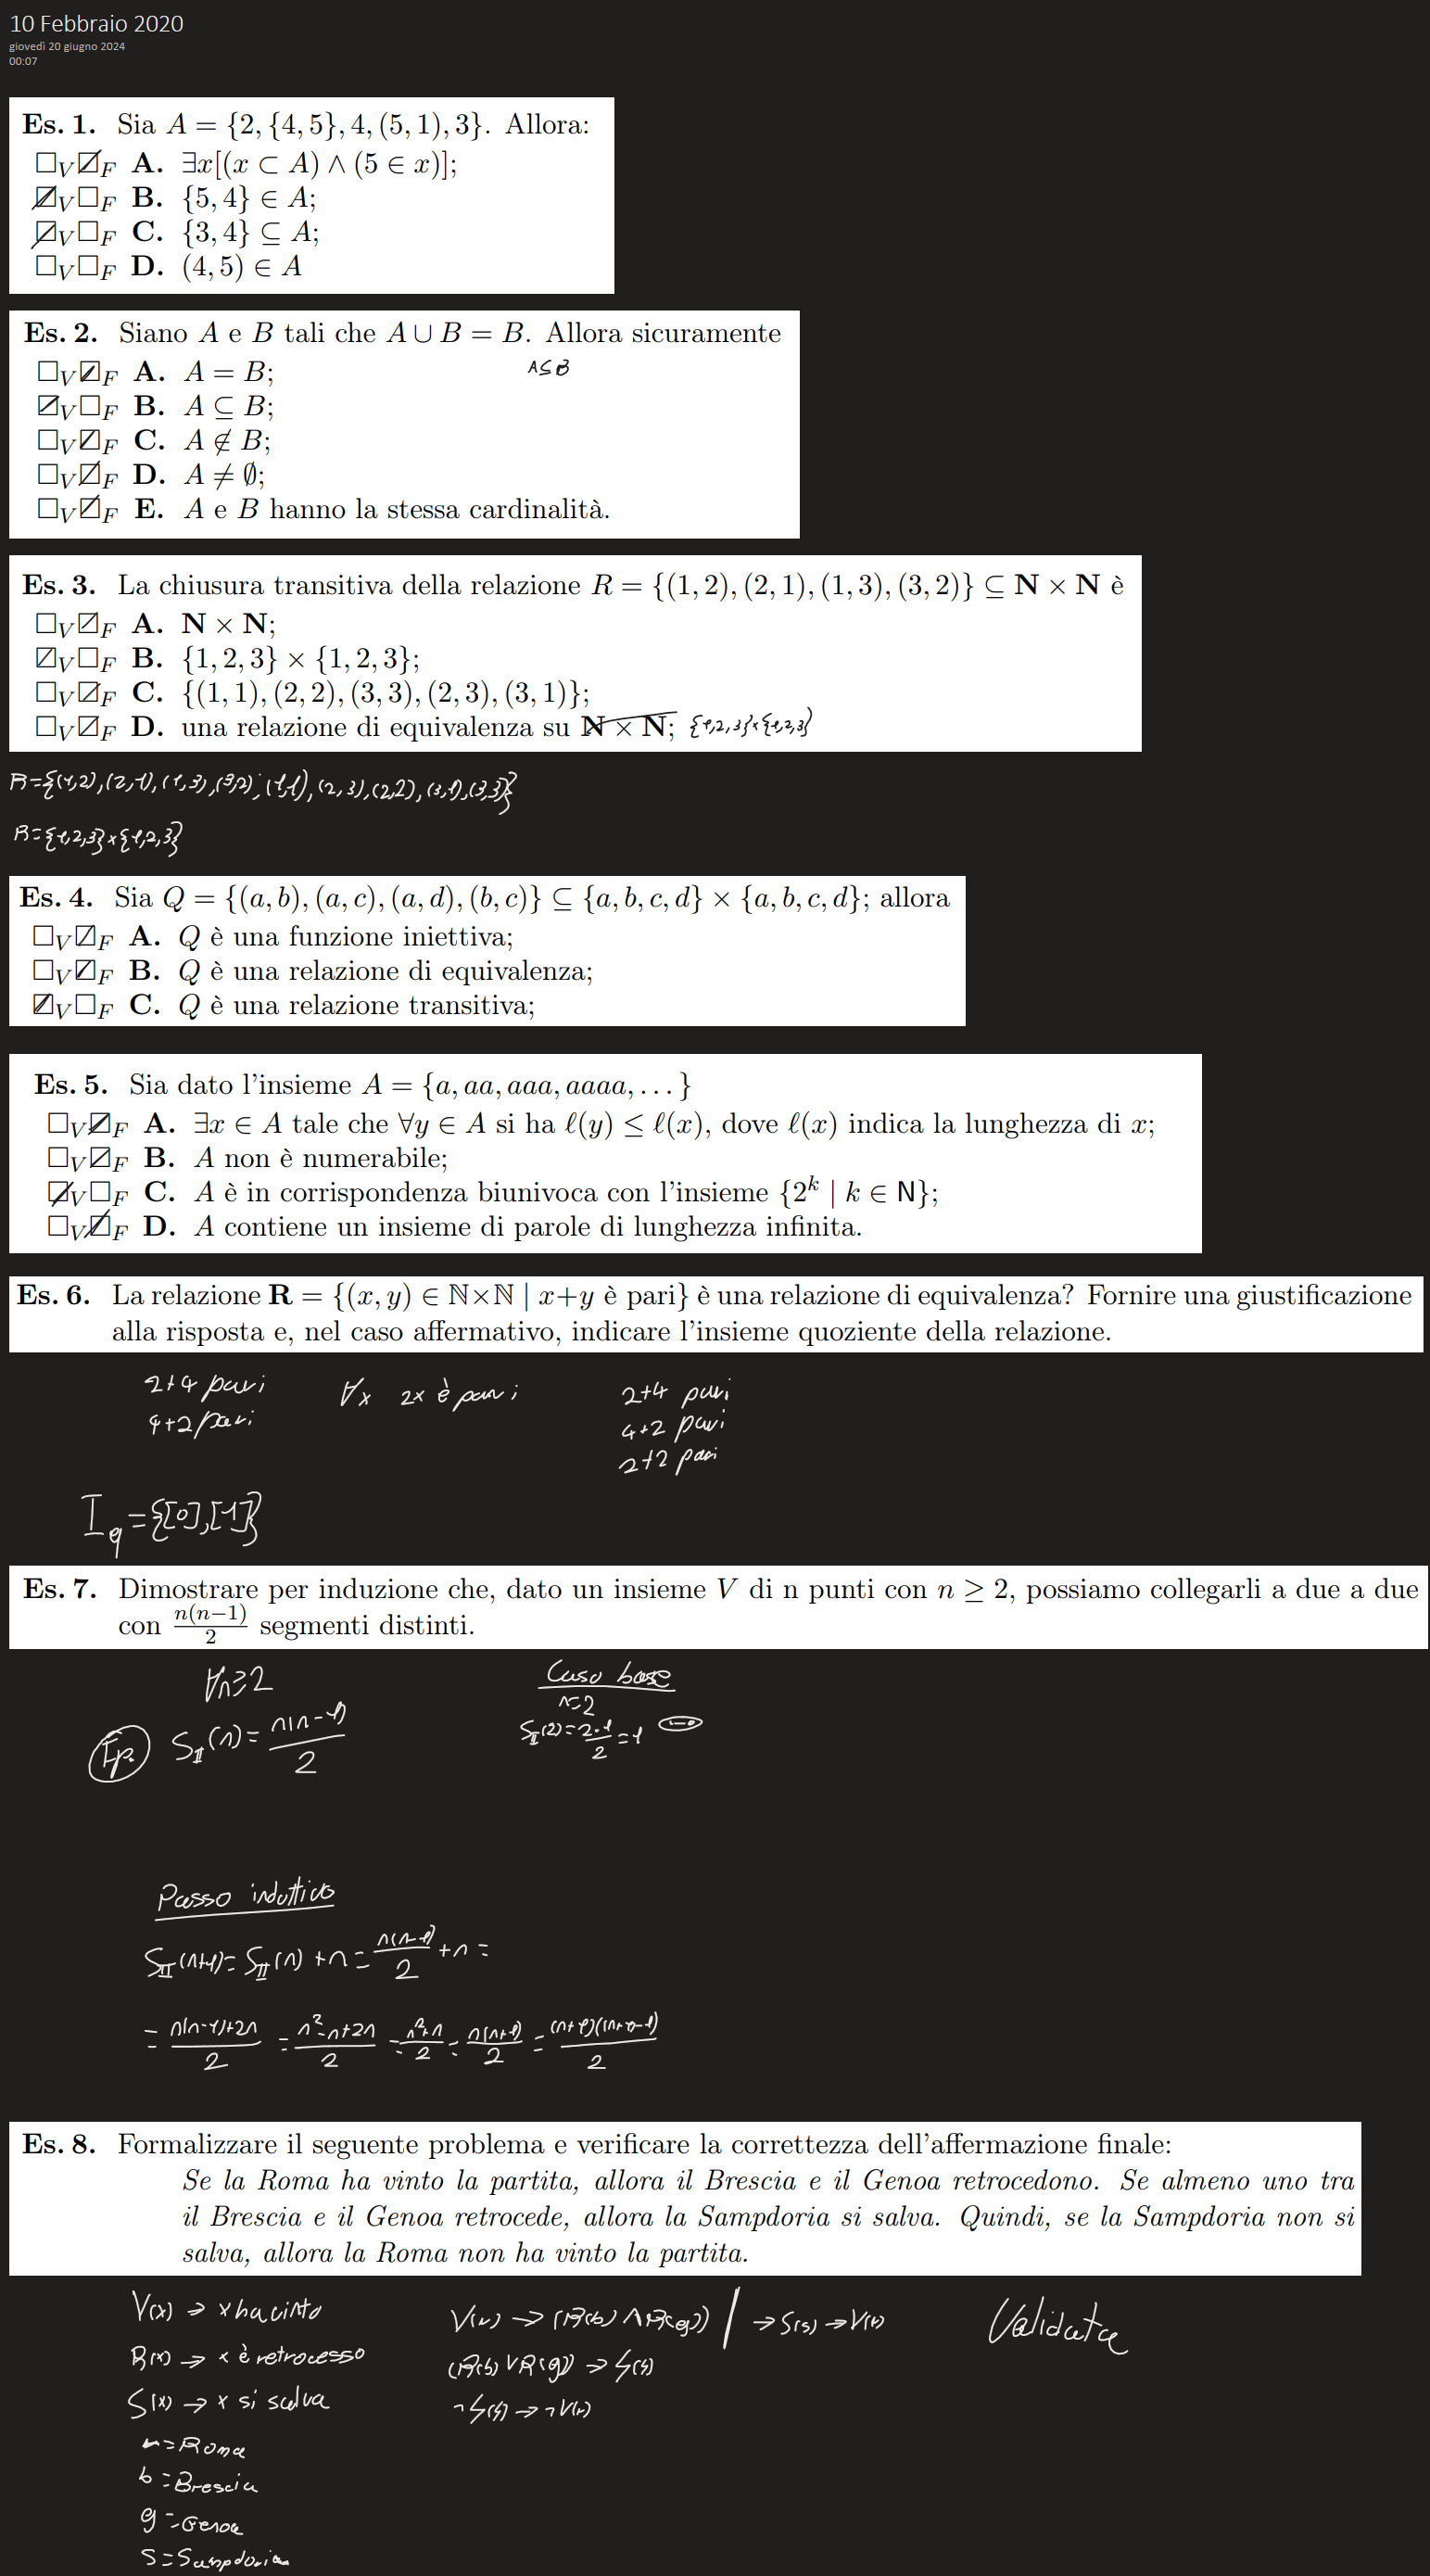 10 Febbraio 2020
giovedì 20 giugno 2024
00:07
Es. 1. Sia A = {2, {4, 5}, 4, (5, 1), 3}. Allora:
□V☑F A. ∃x[(x ⊂ A) ∧ (5 ∈ x)];
☑V□F B. {5, 4} ∈ A;
☑V□F C. {3, 4} ⊆ A;
□V□F D. (4, 5) ∈ A
Es. 2. Siano A e B tali che A ∪ B = B. Allora sicuramente
A⊆B
□V☑F A. A = B;
☑V□F B. A ⊆ B;
□V☑F C. A ∉ B;
□V☑F D. A ≠ ∅;
□V☑F E. A e B hanno la stessa cardinalità.
Es. 3. La chiusura transitiva della relazione R = {(1, 2), (2, 1), (1, 3), (3, 2)} ⊆ N × N è
□V☑F A. N × N;
☑V□F B. {1, 2, 3} × {1, 2, 3};
□V☑F C. {(1, 1), (2, 2), (3, 3), (2, 3), (3, 1)};
□V☑F D. una relazione di equivalenza su N × N; {1,2,3}×{1,2,3}
R={(1,2),(2,1),(1,3),(3,2);(1,1),(2,3),(2,2),(3,1),(3,3)}
R={1,2,3}×{1,2,3}
Es. 4. Sia Q = {(a, b), (a, c), (a, d), (b, c)} ⊆ {a, b, c, d} × {a, b, c, d}; allora
□V☑F A. Q è una funzione iniettiva;
□V☑F B. Q è una relazione di equivalenza;
☑V□F C. Q è una relazione transitiva;
Es. 5. Sia dato l'insieme A = {a, aa, aaa, aaaa, . . . }
□V☑F A. ∃x ∈ A tale che ∀y ∈ A si ha ℓ(y) ≤ ℓ(x), dove ℓ(x) indica la lunghezza di x;
□V☑F B. A non è numerabile;
☑V□F C. A è in corrispondenza biunivoca con l'insieme {2^k | k ∈ N};
□V☑F D. A contiene un insieme di parole di lunghezza infinita.
Es. 6. La relazione R = {(x, y) ∈ ℕ×ℕ | x+y è pari} è una relazione di equivalenza? Fornire una giustificazione
alla risposta e, nel caso affermativo, indicare l'insieme quoziente della relazione.
2+4 pari
4+2 pari
∀x 2x è pari
2+4 pari
4+2 pari
2+2 pari
I_q={[0],[1]}
Es. 7. Dimostrare per induzione che, dato un insieme V di n punti con n ≥ 2, possiamo collegarli a due a due
con n(n−1)/2 segmenti distinti.
∀n≥2
Ip. S_II(n)= n(n-1)/2
Caso base
n=2
S_II(2)= 2·1/2 =1
Passo induttivo
S_II(n+1)= S_II(n) +n = n(n-1)/2 +n =
= n(n-1)+2n/2 = n²-n+2n/2 = n²+n/2 = n(n+1)/2 = (n+1)(n+1-1)/2
Es. 8. Formalizzare il seguente problema e verificare la correttezza dell'affermazione finale:
Se la Roma ha vinto la partita, allora il Brescia e il Genoa retrocedono. Se almeno uno tra
il Brescia e il Genoa retrocede, allora la Sampdoria si salva. Quindi, se la Sampdoria non si
salva, allora la Roma non ha vinto la partita.
V(x) → x ha vinto
R(x) → x è retrocesso
S(x) → x si salva
r=Roma
b=Brescia
g=Genoa
s=Sampdoria
V(r) → (R(b) ∧ R(g))
(R(b) ∨ R(g)) → S(s)
¬S(s) → ¬V(r)
→ S(s) → V(r)
Validata